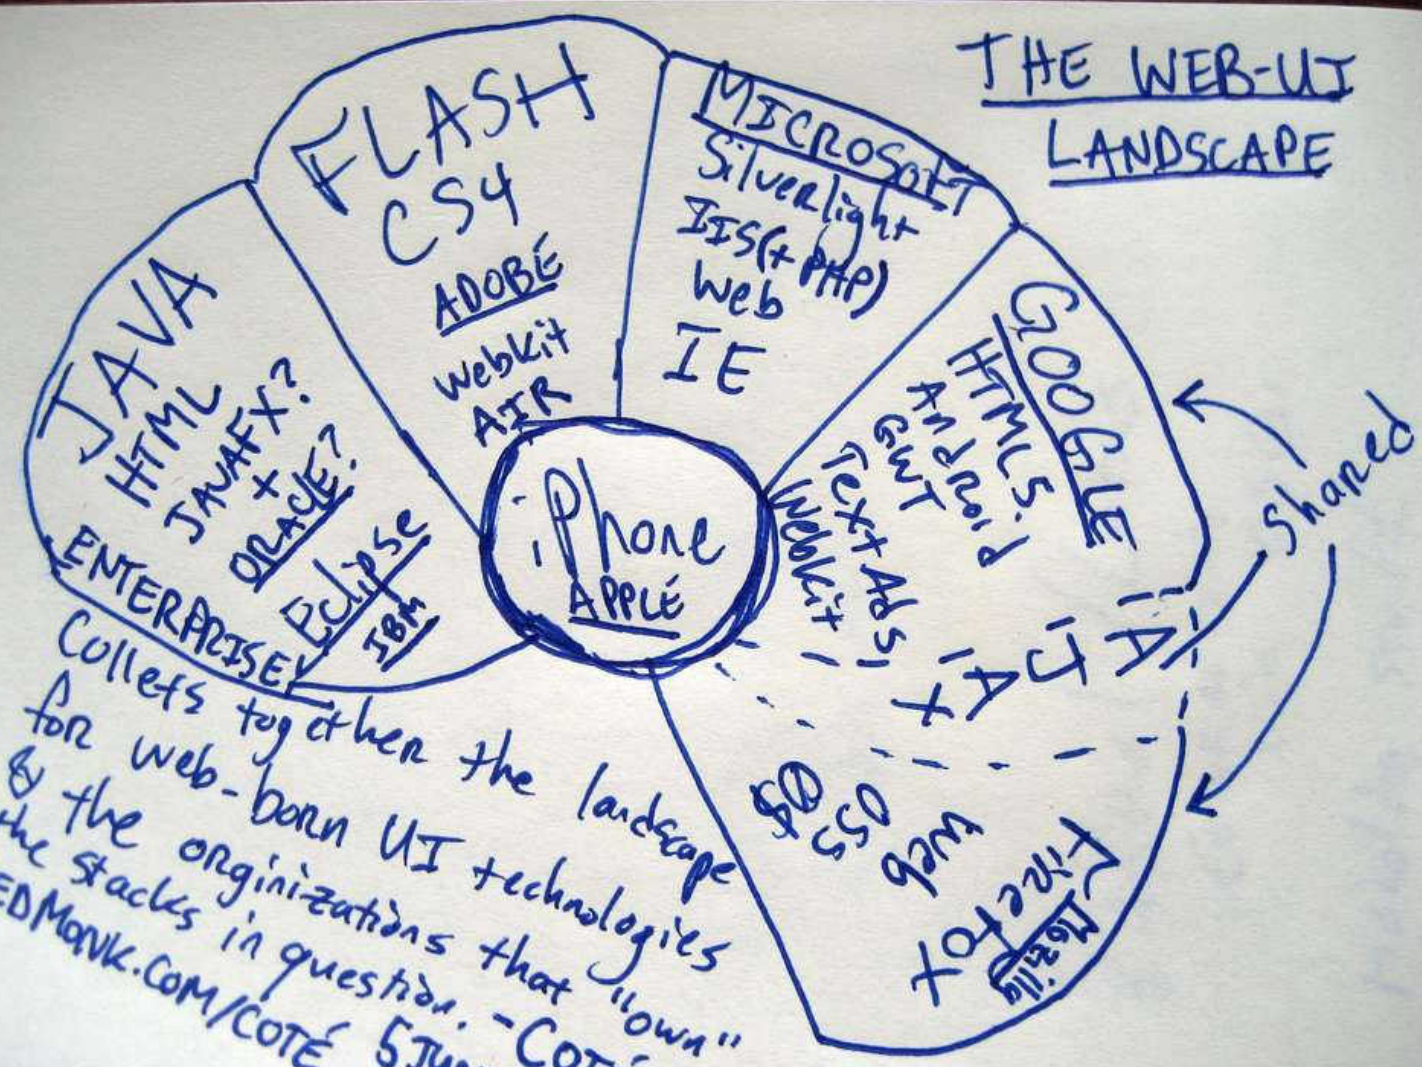 THE WEB-UI
LANDSCAPE
JAVA
HTML
JAVAFX?
+
ORACLE?
Eclipse
IBM
ENTERPRISE!
FLASH
CS4
ADOBE
Webkit
AIR
MICROSOFT
Silverlight
IIS(+ PHP)
Web
IE
GOOGLE
HTML5
Android
GWT
Text Ads
Webkit
shared
AJAX
Firefox
Mozilla
Web
OSS
iPhone
APPLE
Collets together the landscape
for web-born UI technologies
& the orginizations that "own"
the stacks in question. -Coté
EDMONK.COM/COTÉ